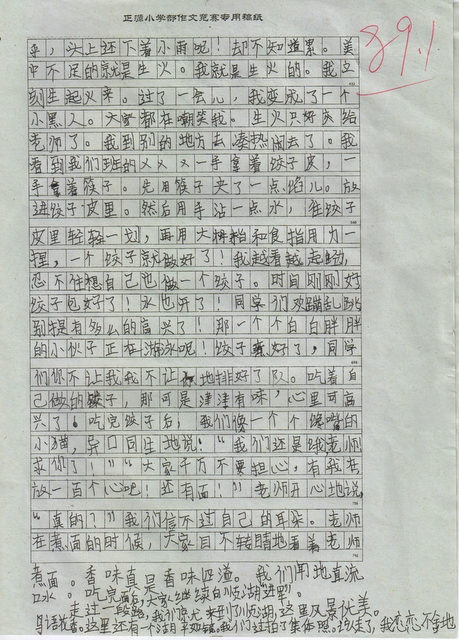 正源小学部作文竞赛专用稿纸
89.1
乎,头上还下着小雨呢!却不知道累。美
中不足的就是生火。我就是生火的。我立
刻生起火来。过了一会儿,我变成了一个
小黑人。大家都在嘲笑我。生火只好交给
老师了。我到别的地方去凑热闹去了。我
看到我们班的乂乂乂一手拿着饺子皮,一
手拿着筷子。先用筷子夹了一点馅儿。放
进饺子皮里。然后用手沾一点水,往饺子
皮里轻轻一划,再用大拇指和食指用力一
捏,一个饺子就做好了!我越看越
忍不住想自己也做一个饺子。时间刚刚好
饺子包好了!水也开了!同学们欢蹦乱跳
别提有多么的高兴了!那一个个白白胖胖
的小伙子正在游泳呢!饺子煮好了,同学
们你不让我我不让你地排好了队。吃着自
己做的饺子,那可是津津有味,心里可高
兴了。吃完饺子后,我们像一个个馋嘴的
小猫,异口同生地说:“我们还是饿老师
求你了!”“大家千万不要担心,有我在
放一百个心吧!还有面!”老师开心地说
“真的?”我们信不过自己的耳朵。老师
在煮面的时候,大家目不转睛地看着老师
煮面。香味真是香味四道。我们闻地直流
口水。吃完面后,大家继续向
走过一段路,我们原先来到了 湖,这里风景优美。
鸟语花香。这里还有一个湖 我们过拍了集体照。 走了,我恋恋不舍地